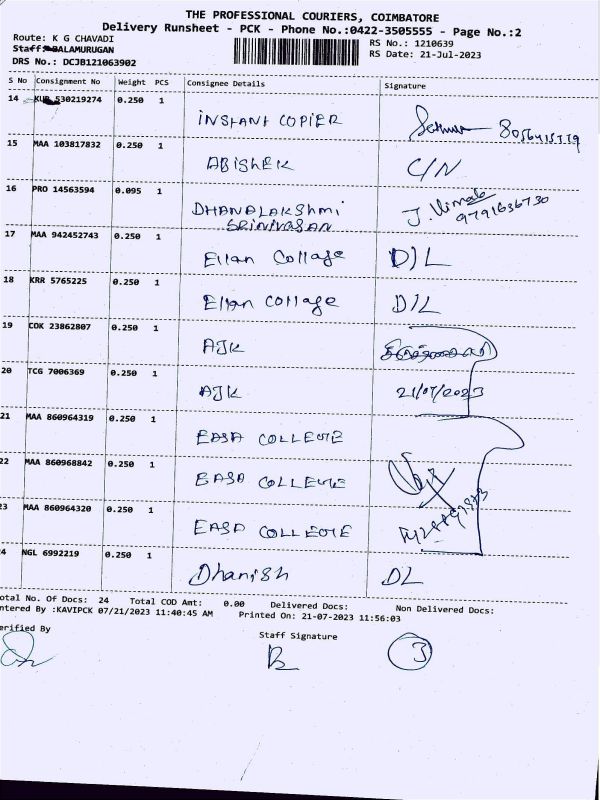 THE PROFESSIONAL COURIERS, COIMBATORE
Delivery Runsheet - PCK - Phone No.:0422-3505555 - Page No.:2
Route: K G CHAVADI
RS No.: 1210639
Staff: BALAMURUGAN
RS Date: 21-Jul-2023
DRS No.: DCJB121063902
S No Consignment No Weight PCS Consignee Details Signature
14 530219274 0.250 1 INSTANT COPIER
15 MAA 103817832 0.250 1 ABISHEK C/N
16 PRO 14563594 0.095 1 DHANALAKSHMI J. Vimala
SRINIVASAN 9791636730
17 MAA 942452743 0.250 1 Ellan Collage D/L
18 KRR 5765225 0.250 1 Ellan Collage D/L
19 COK 23862807 0.250 1 AJK
20 TCG 7006369 0.250 1 AJK 21/07/2023
21 MAA 860964319 0.250 1 EASA COLLEGE
22 MAA 860968842 0.250 1 EASA COLLEGE
23 MAA 860964320 0.250 1 EASA COLLEGE
24 NGL 6992219 0.250 1 Dhanish DL
otal No. Of Docs: 24 Total COD Amt: 0.00 Delivered Docs: Non Delivered Docs:
ntered By :KAVIPCK 07/21/2023 11:40:45 AM Printed On: 21-07-2023 11:56:03
erified By Staff Signature
3